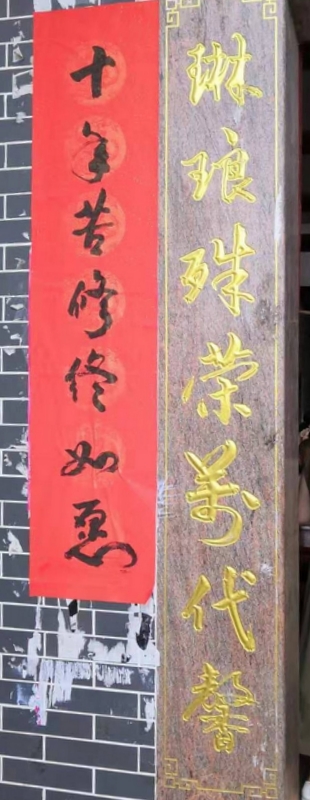 琳琅殊荣万代馨
十年苦修终如愿